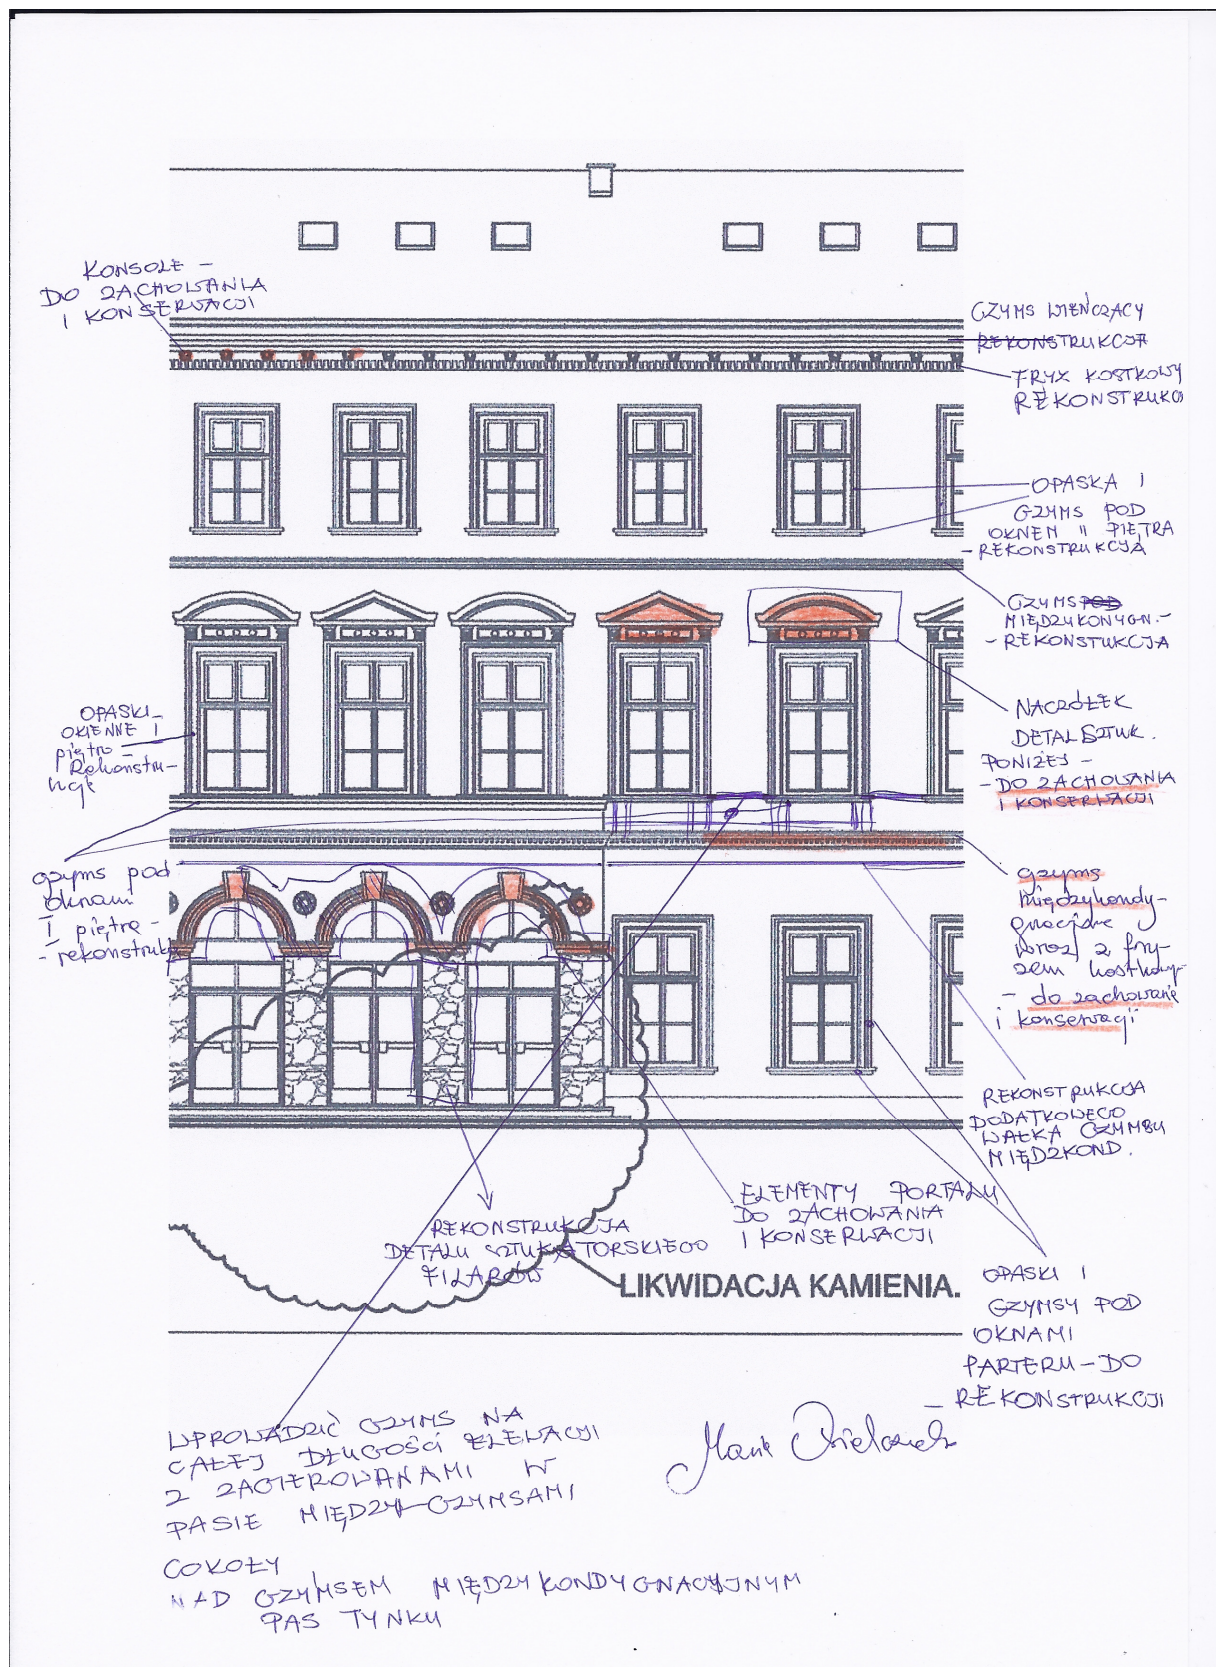 KONSOLE –
DO ZACHOWANIA
I KONSERWACJI
GZYMS WIEŃCZĄCY
REKONSTRUKCJA
FRYZ KOSTKOWY
REKONSTRUKC
OPASKA I
GZYMS POD
OKNEM II PIĘTRA
– REKONSTRUKCJA
GZYMS POD
MIĘDZYKONYGN. –
– REKONSTUKCJA
OPASKI –
OKIENNE I
piętro –
Rekonstru-
NACZÓŁEK
DETAL SZTUK.
PONIŻEJ –
– DO ZACHOWANIA
I KONSERWACJI
gzyms pod
oknami
I piętra –
– rekonstrukc
gzyms
międzykondy-
gnacyjne
wraz z fry-
zem kostkowy-
– do zachowanie
i konserwacji
REKONSTRUKCJA
DODATKOWEGO
WAŁKA GZYMSU
MIĘDZKOND.
ELEMENTY PORTALU
DO ZACHOWANIA
I KONSERWACJI
REKONSTRUKCJA
DETALU SZTUKATORSKIEGO
FILARÓW
LIKWIDACJA KAMIENIA.
OPASKI I
GZYMSY POD
OKNAMI
PARTERU – DO
– REKONSTRUKCJI
WPROWADZIĆ GZYMS NA
CAŁEJ DŁUGOŚCI ELEWACJI
Z ZAGIEROWANAMI W
PASIE MIĘDZY GZYMSAMI
COKOŁY
NAD GZYMSEM MIĘDZYKONDYGNACYJNYM
PAS TYNKU